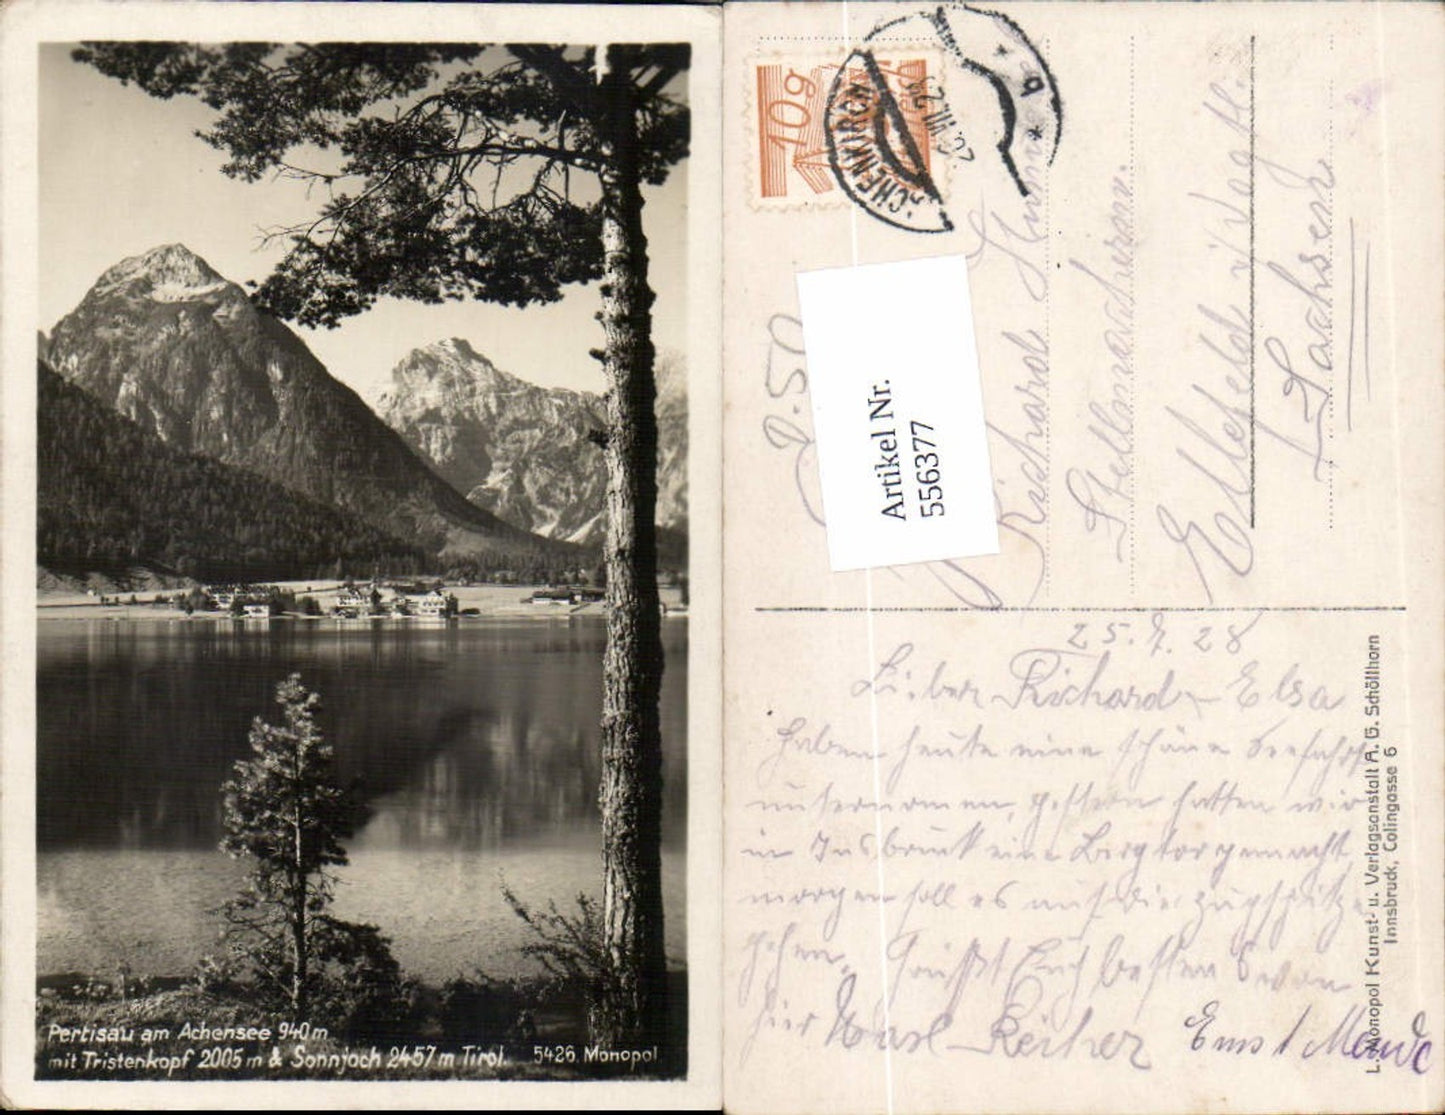 Pertisau am Achensee 940m
mit Tristenkopf 2005 m & Sonnjoch 2457 m Tirol. 5426 Monopol
10g
ACHENKIRCH
b
Artikel Nr.
556377
Richard
Stellmacherm.
Ellefeld i/Vogtl.
Sachsen
25.7.28
Lieber Richard Elsa
haben heute eine schöne Seefahrt
unternommen, gestern hatten wir
in Insbruck eine gemacht,
morgen soll es auf die Zugspitze
gehen. Grüsst Euch bestens von
hier Karl Ernst
L. Monopol Kunst- u. Verlagsanstalt A. G. Schöllhorn
Innsbruck, Colingasse 6